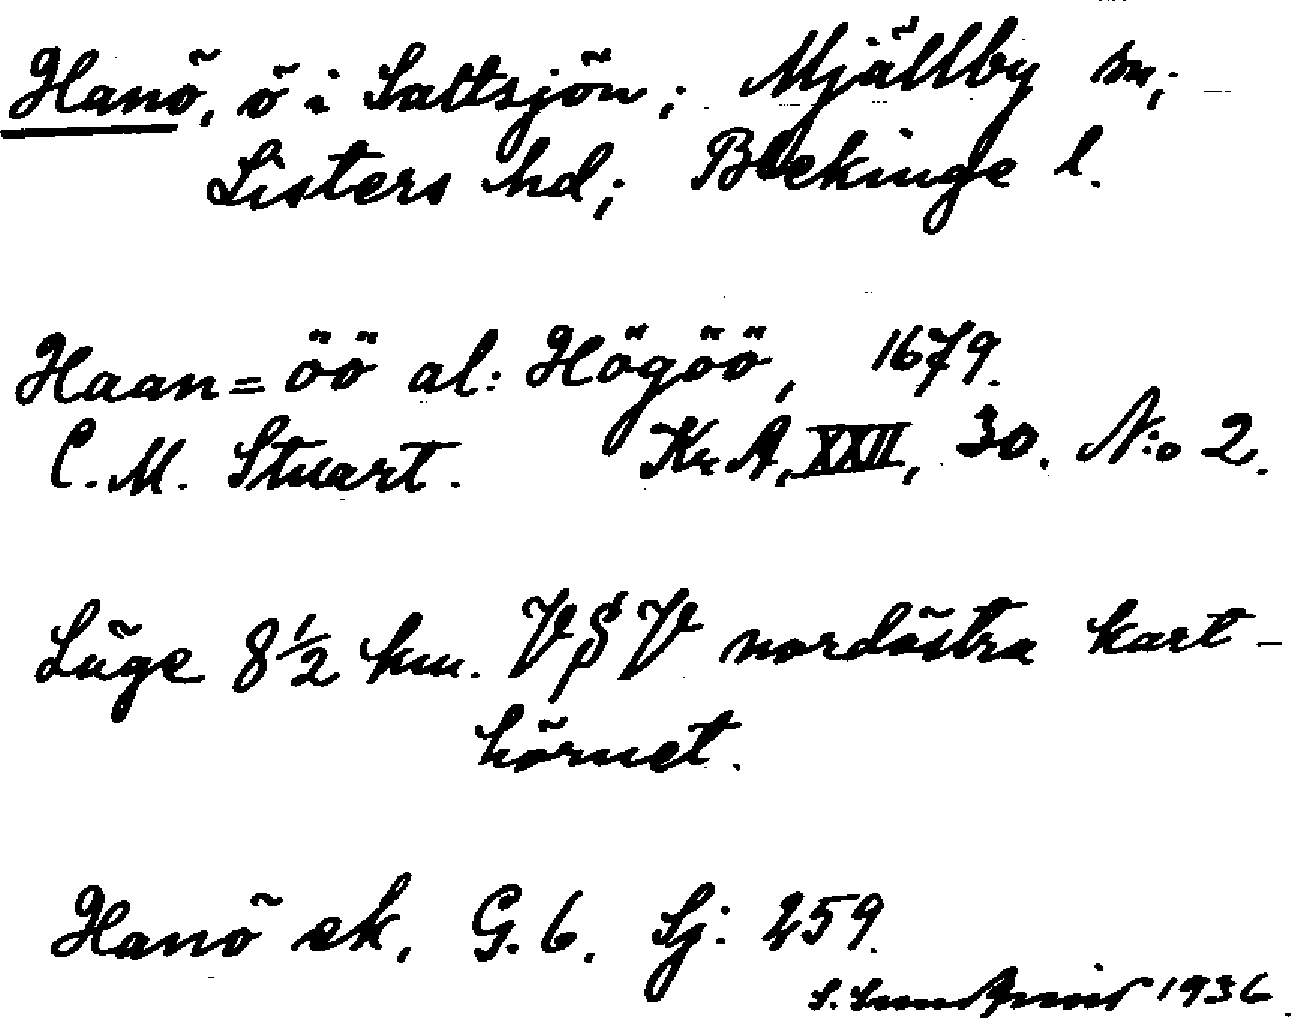 Hanö, ö i Saltsjön; Mjällby sn;
Listers hd; Blekinge l.
Haan=öö al: Högöö, 1679.
C. M. Stuart. Kr. A, XXII, 30. N:o 2.
Läge 8 1/2 km. VSV nordöstra kart-
hörnet.
Hanö ek, G. 6. Sj: 259.
S. Sundqvist 1936.